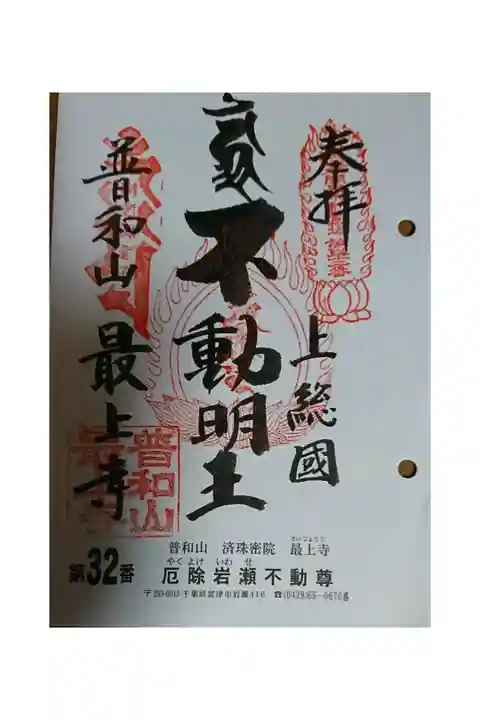 奉拝
上総國
不動明王
普和山 最上寺
普和山
普和山 済珠密院 最上寺
さいじょうじ
第32番
やくよけ いわ せ
厄除岩瀬不動尊
千葉県富津市岩瀬416 ☎(0439)65-0670番